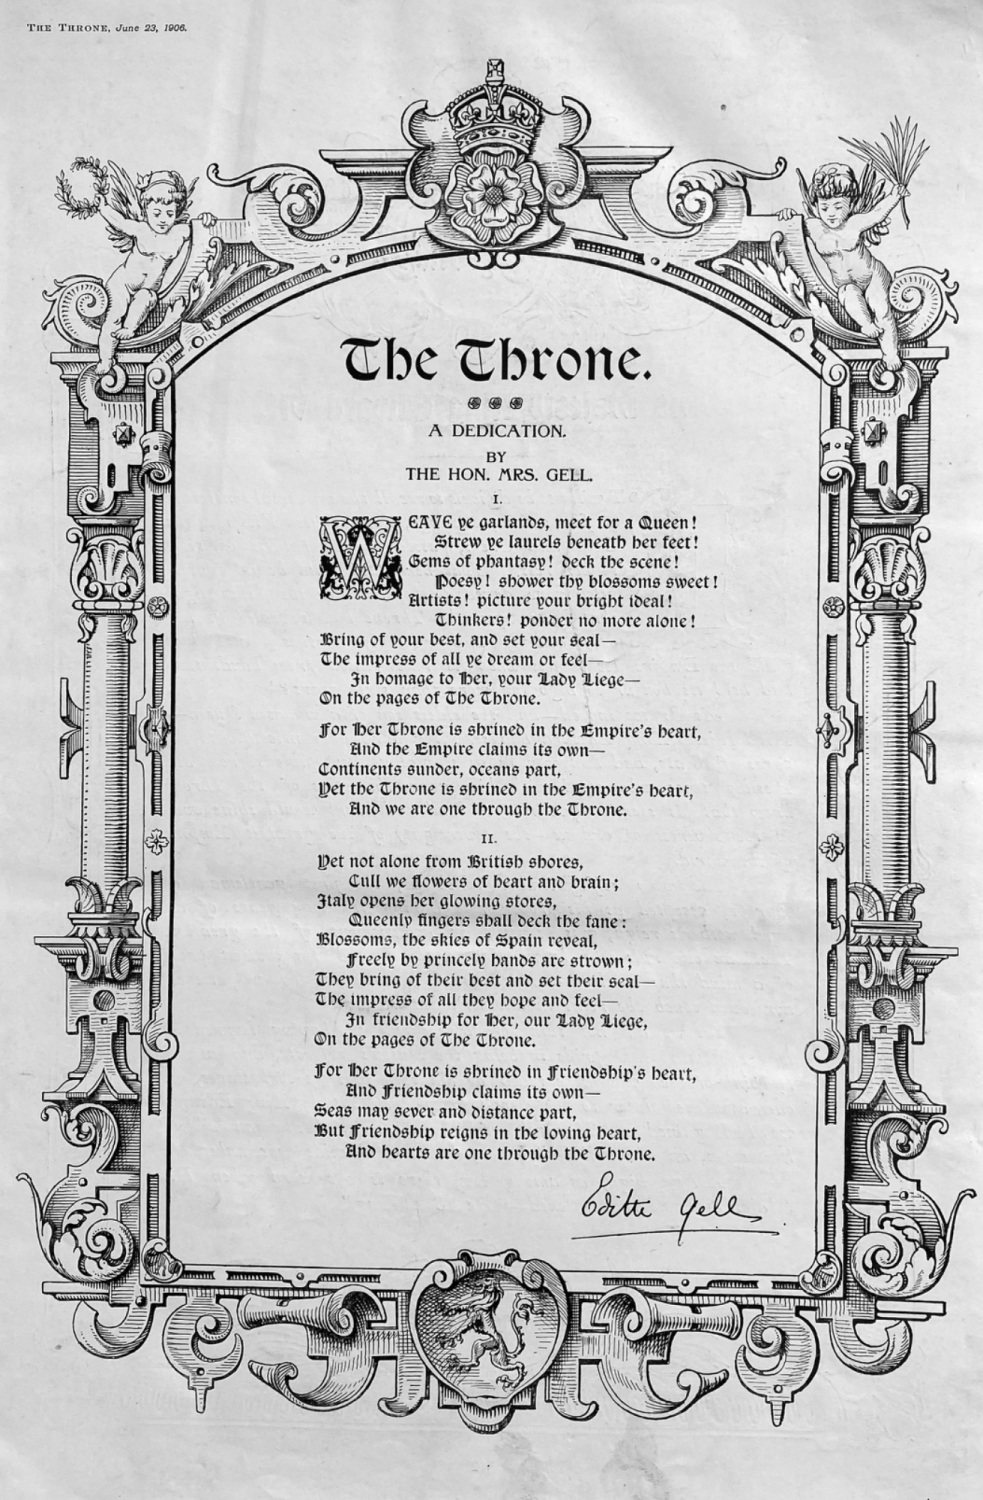 THE THRONE, June 23, 1906.
The Throne.
A DEDICATION.
BY
THE HON. MRS. GELL.
I.
WEAVE ye garlands, meet for a Queen!
Strew ye laurels beneath her feet!
Gems of phantasy! deck the scene!
Poesy! shower thy blossoms sweet!
Artists! picture your bright ideal!
Thinkers! ponder no more alone!
Bring of your best, and set your seal—
The impress of all ye dream or feel—
In homage to Her, your Lady Liege—
On the pages of The Throne.
For Her Throne is shrined in the Empire's heart,
And the Empire claims its own—
Continents sunder, oceans part,
Yet the Throne is shrined in the Empire's heart,
And we are one through the Throne.
II.
Yet not alone from British shores,
Cull we flowers of heart and brain;
Italy opens her glowing stores,
Queenly fingers shall deck the fane:
Blossoms, the skies of Spain reveal,
Freely by princely hands are strown;
They bring of their best and set their seal—
The impress of all they hope and feel—
In friendship for Her, our Lady Liege,
On the pages of The Throne.
For Her Throne is shrined in Friendship's heart,
And Friendship claims its own—
Seas may sever and distance part,
But Friendship reigns in the loving heart,
And hearts are one through the Throne.
Edith Gell